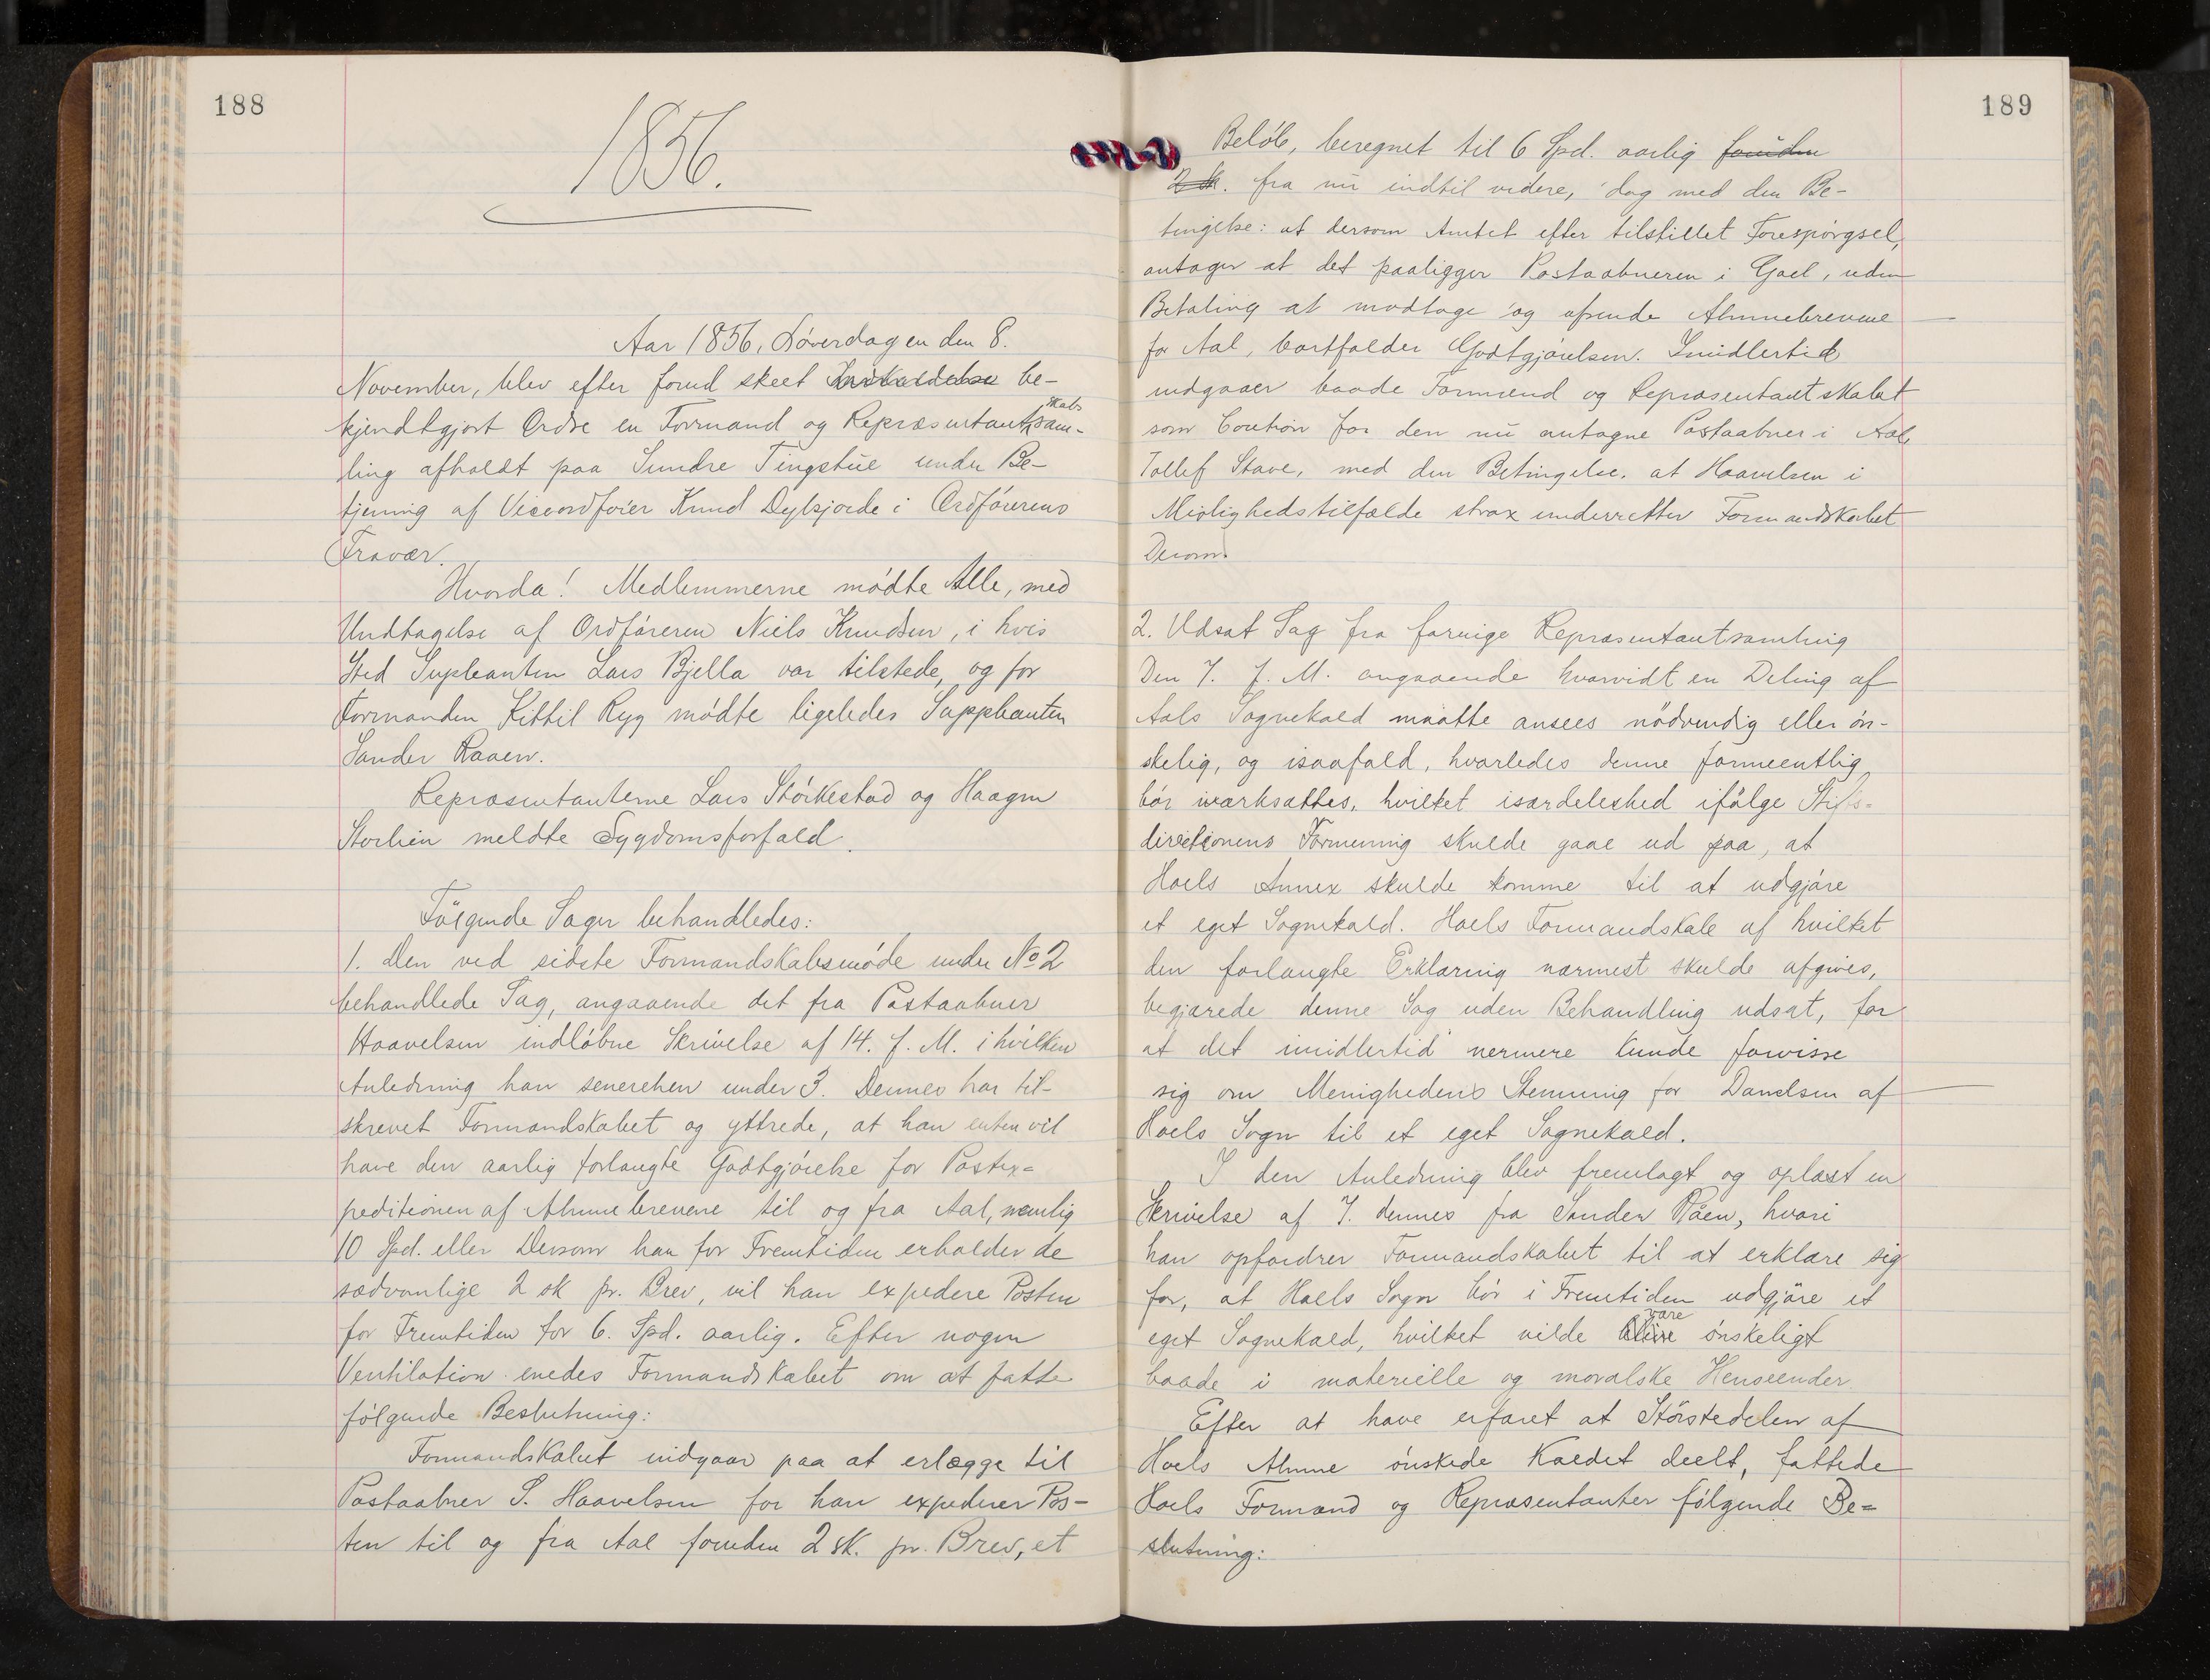 188
1856.
Aar 1856, Løverdagen den 8.
November, blev efter forud skeet Indkaldelse be-
kjendtgjort Ordre en Formand og Repræsentantskabssam-
ling afholdt paa Sundre Tingstue under Be-
tjening af Viceordfører Knud Dybsjorde i Ordførerens
Fravær.
Hvorda! Medlemmerne mødte Alle, med
Undtagelse af Ordføreren Niels Knudsen, i hvis
Sted Supleanten Lars Bjella var tilstede, og for
Formanden Kittil Ryg mødte ligeledes Suppleanten
Sander Raaen.
Repræsentanterne Lars Størkestad og Haagen
Storlien meldte Sygdomsforfald.
Følgende Sager behandledes:
1. Den ved sidste Formandskabsmøde under No 2
behandlede Sag, angaaende det fra Postaabner
Haavelsen indløbne Skrivelse af 14. f. M. i hvilken
Anledning han senerehen under 3. Dennes har til-
skrevet Formandskabet og yttrede, at han enten vil
have den aarlig forlangte Godtgjørelse for Postex=
peditionen af Almuebrevene til og fra Aal, nemlig
10 Spd. eller Dersom han for Fremtiden erholder de
sædvanlige 2 sk pr. Brev, vil han expedere Posten
for Fremtiden for 6. Spd. aarlig. Efter nogen
Ventilation enedes Formandskabet om at fatte
følgende Beslutning:
Formandskabet indgaar paa at erlægge til
Postaabner S. Haavelsen for han expederer Pos-
ten til og fra Aal foruden 2 sk. pr. Brev, et
189
Beløb, beregnet til 6 Spd. aarlig foruden
2 sk. fra nu indtil videre, dog med den Be-
tingelse: at dersom Amtet efter tilstillet Forespørgsel,
antager at det paaligger Postaabneren i Goel, uden
Betaling at modtage og afsende Almuebrevene
for Aal, bortfalder Godtgjørelsen. Imidlertid
indgaaer baade Formænd og Repræsentantskabet
som Caution for den nu antagne Postaabner i Aal,
Tollef Stave, med den Betingelse, at Haavelsen i
Mislighedstilfælde strax underretter Formandskabet
Derom.
2. Udsat Sag fra forrige Repræsentantsamling
Den 7. f. M. angaaende hvorvidt en Deling af
Aals Sognekald maatte ansees nødvendig eller øn-
skelig, og isaafald, hvorledes denne formeentlig
bør iværksættes, hvilket isærdeleshed ifølge Stifts=
directionens Formening skulde gaae ud paa, at
Hoels Annex skulde komme til at udgjøre
et eget Sognekald. Hoels Formandskab af hvilket
den forlangte Erklæring nærmest skulde afgives,
begjærede denne Sag uden Behandling udsat, for
at det imidlertid nermere kunde forvisse
sig om Menighedens Stemning for Danelsen af
Hoels Sogn til et eget Sognekald.
I den Anledning blev fremlagt og oplæst en
Skrivelse af 7. dennes fra Sander Råen, hvori
han opfordrer Formandskabet til at erklære sig
for, at Hoels Sogn bør i Fremtiden udgjøre et
eget Sognekald, hvilket vilde blive være ønskeligt
baade i materielle og moralske Henseender.
Efter at have erfaret at Størstedelen af
Hoels Almue ønskede Kaldet deelt, fattede
Hoels Formænd og Repræsentanter følgende Be=
slutning: